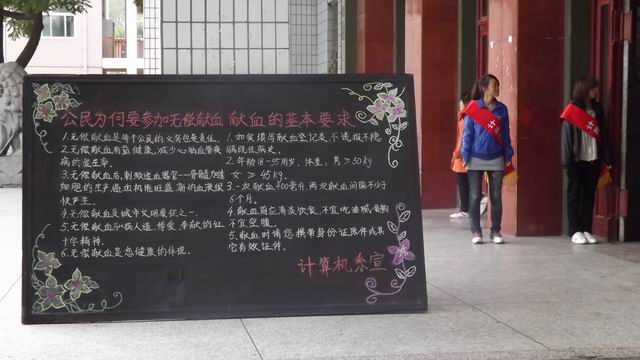 公民为何要参加无偿献血 献血的基本要求
1.无偿献血是每个公民的义务也是责任。
2.无偿献血有益健康,减少心脑血管疾
病的发生率。
3.无偿献血后,刺激造血器官——骨髓加速
细胞的生产造血机能旺盛,新的血液很
快产生。
4.无偿献血是城市文明象征之一。
5.无偿献血弘扬人道、博爱、奉献的红
十字精神。
6.无偿献血是您健康的体现。
1.如实填写献血登记表,不谎报不隐
瞒既往病史。
2.年龄18-55周岁,体重:男≥50kg
女≥45kg。
3.一次献血400毫升,两次献血间隔不少于
6个月。
4.献血前应清淡饮食,不宜吃油腻食物
不宜空腹。
5.献血时请您携带身份证原件或其
它有效证件。
计算机系宣